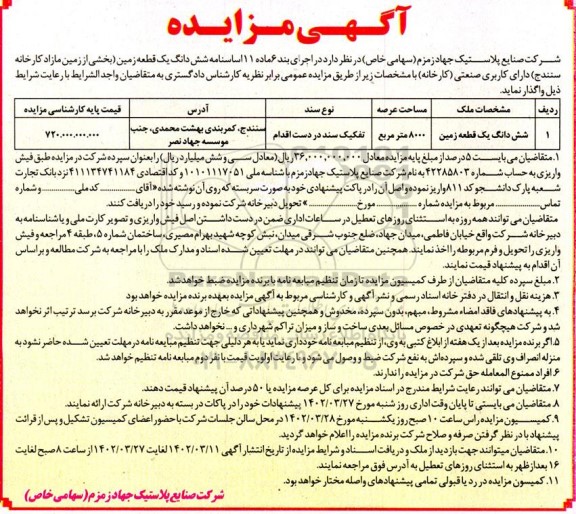 آگهی مزایده
شرکت صنایع پلاستیک جهاد زمزم (سهامی خاص) در نظر دارد در اجرای بند ۶ ماده ۱۱ اساسنامه شش دانگ یک قطعه زمین (بخشی از زمین مازاد کارخانه
سنندج) دارای کاربری صنعتی (کارخانه) با مشخصات زیر از طریق مزایده عمومی برابر نظریه کارشناس دادگستری به متقاضیان واجد الشرایط با رعایت شرایط
ذیل واگذار نماید.
ردیف مشخصات ملک مساحت عرصه نوع سند آدرس قیمت پایه کارشناسی مزایده
۱ شش دانگ یک قطعه زمین ۸۰۰۰ متر مربع تفکیک سند در دست اقدام سنندج، کمربندی بهشت محمدی، جنب ۷۲۰,۰۰۰,۰۰۰,۰۰۰
موسسه جهاد نصر
۱. متقاضیان می بایست ۵ درصد از مبلغ پایه مزایده معادل ۳۶,۰۰۰,۰۰۰,۰۰۰ ریال (معادل سی و شش میلیارد ریال) را بعنوان سپرده شرکت در مزایده طبق فیش
واریزی به حساب شماره ۴۲۲۸۵۸۰۳ به نام شرکت صنایع پلاستیک جهاد زمزم با شناسه ملی ۱۰۱۰۱۱۱۷۰۵۱ و کد اقتصادی ۴۱۱۱۳۴۷۴۱۱۸۴ نزد بانک تجارت
شعبه پارک دانشجو کد ۸۱۱ واریز نموده و اصل آن را در پاکت پیشنهادی خود به صورت سربسته که روی آن نوشته شده «آقای ........ کد ملی ........ و شماره
تماس ........ مربوط به مزایده شماره ........ مورخ ........» تحویل دبیرخانه شرکت نموده و رسید خود را دریافت کنند.
متقاضیان می توانند همه روزه به استثنای روزهای تعطیل در ساعات اداری ضمن در دست داشتن اصل فیش واریزی و تصویر کارت ملی و یا شناسنامه به
دبیرخانه شرکت واقع خیابان فاطمی، میدان جهاد، ضلع جنوب شرقی میدان، نبش کوچه شهید بهرام مصیری، ساختمان شماره ۵، طبقه ۴ مراجعه و فیش
واریزی را تحویل و فرم مربوطه را اخذ نمایند. همچنین متقاضیان می توانند در مهلت تعیین شده اسناد و مدارک ملک را با مراجعه به شرکت مطالعه و براساس
آن اقدام به پیشنهاد قیمت نمایند.
۲. مبلغ سپرده کلیه متقاضیان از طرف کمیسیون مزایده تا زمان تنظیم مبایعه نامه با برنده مزایده ضبط خواهد شد.
۳. هزینه نقل و انتقال در دفتر خانه اسناد رسمی و نشر آگهی و کارشناسی مربوط به آگهی مزایده بعهده برنده مزایده خواهد بود
۴. به پیشنهادهای فاقد امضاء مشروط، مبهم، بدون سپرده، مخدوش و همچنین پیشنهاداتی که خارج از موعد مقرر به دبیرخانه شرکت برسد ترتیب اثر نخواهد
شد و شرکت هیچگونه تعهدی در خصوص مسائل بعدی ساخت و ساز و میزان تراکم شهرداری و... نخواهد داشت.
۵. اگر برنده مزایده بعد از یک هفته از ابلاغ کتبی به وی، از تنظیم مبایعه نامه خودداری نماید یا به هر دلیلی جهت تنظیم مبایعه نامه در مهلت تعیین شده حاضر نشود به
منزله انصراف وی تلقی شده و سپرده اش به نفع شرکت ضبط و وصول می شود و با رعایت اولویت قیمت با نفر دوم مبایعه نامه تنظیم خواهد شد.
۶. افراد ممنوع المعامله حق شرکت در مزایده را ندارند.
۷. متقاضیان می توانند رعایت شرایط مندرج در اسناد مزایده برای کل عرصه مزایده یا ۵۰ درصد آن پیشنهاد قیمت دهند.
۸. متقاضیان می بایستی تا پایان وقت اداری روز شنبه مورخ ۱۴۰۲/۰۳/۲۷ پیشنهادات خود را در پاکات در بسته به دبیرخانه شرکت ارائه نمایند.
۹. کمیسیون مزایده راس ساعت ۱۰ صبح روز یکشنبه مورخ ۱۴۰۲/۰۳/۲۸ در محل سالن جلسات شرکت با حضور اعضای کمیسیون تشکیل و پس از قرائت
پیشنهاد با در نظر گرفتن صرفه و صلاح شرکت برنده مزایده را اعلام خواهد گردید.
۱۰. متقاضیان میتوانند جهت بازدید از ملک و دریافت اسناد و شرایط مزایده از تاریخ انتشار آگهی ۱۴۰۲/۰۳/۱۱ لغایت ۱۴۰۲/۰۳/۲۷ از ساعت ۸ صبح لغایت
۱۶ بعداز ظهر به استثنای روزهای تعطیل به آدرس فوق مراجعه نمایند.
۱۱. کمیسیون مزایده در رد یا قبولی تمامی پیشنهادهای واصله مختار خواهد بود.
شرکت صنایع پلاستیک جهاد زمزم (سهامی خاص)